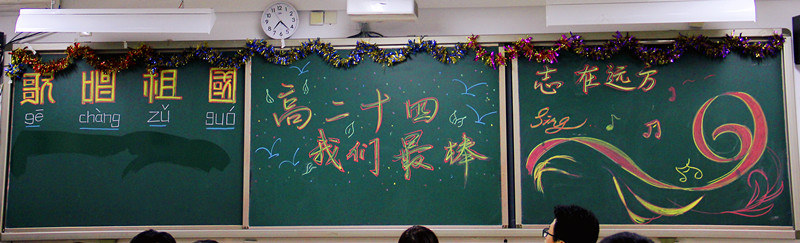 歌唱祖國
gē chàng zǔ guó
高二十四
我们最棒
志在远方
Sing